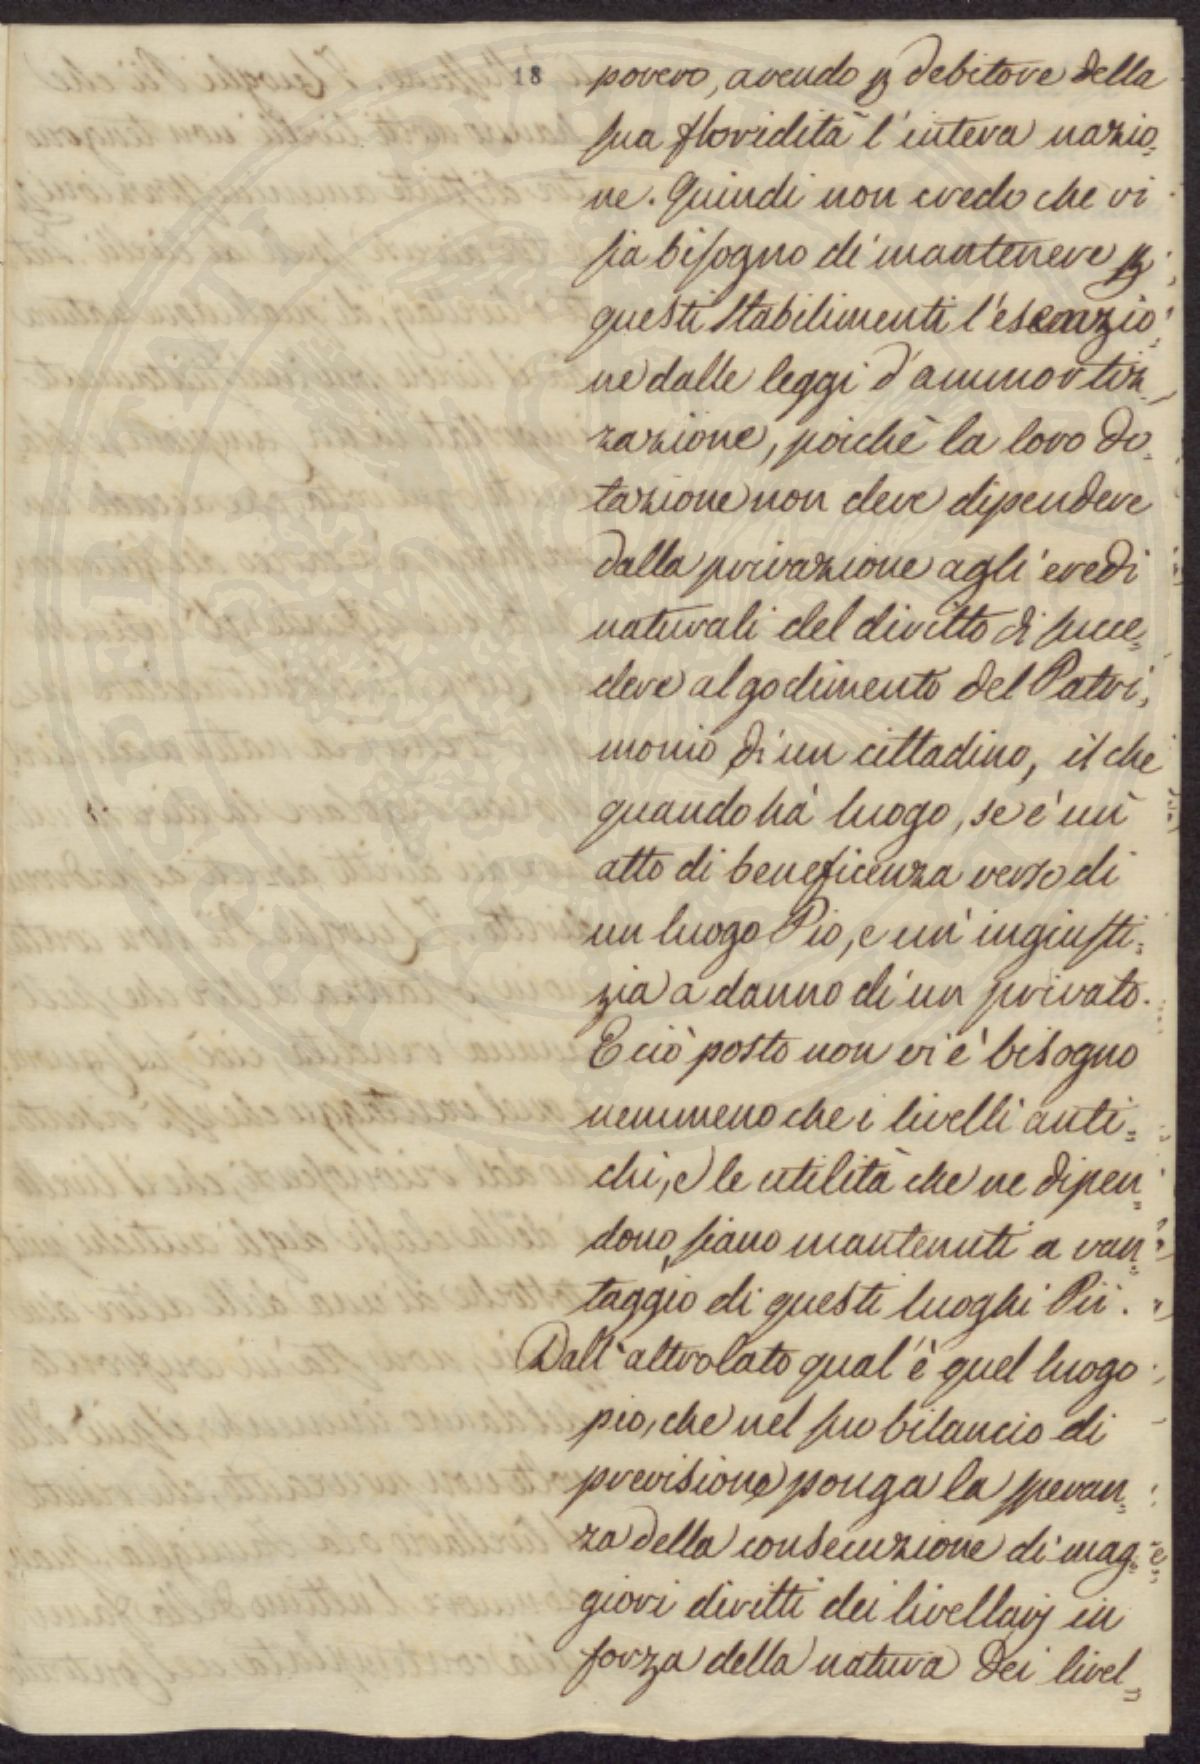 18
povero, avendo p debitore della
sua floridità l'intera nazio„
ne. Quindi non credo che vi
sia bisogno di mantenere p
questi stabilimenti l'esenzio„
ne dalle leggi d'ammortiz„
zazione, poichè la loro do„
tazione non deve dipendere
dalla privazione agli eredi
naturali del diritto di succe„
dere al godimento del Patri„
monio di un cittadino, il che
quando hà luogo, se è un
atto di beneficenza verso di
un luogo Pio, e un' ingiusti„
zia a danno di un privato.
E ciò posto non vi è bisogno
nemmeno che i livelli anti„
chi, e le utilità che ne dipen„
dono, siano mantenuti a van„
taggio di questi luoghi Pii.
Dall'altro lato qual'è quel luogo
pio, che nel suo bilancio di
previsione ponga la speran„
za della consecuzione di mag„
giori diritti dei livellarj in
forza della natura dei livel„